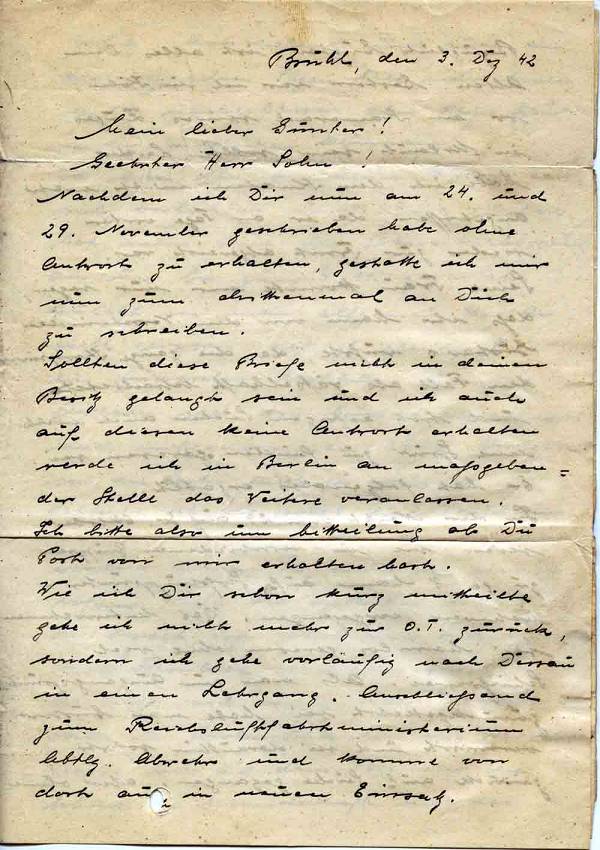 Brühl, den 3. Dez 42
Mein lieber Günther!
Geehrter Herr Sohn!
Nachdem ich Dir nun am 24. und
29. November geschrieben habe ohne
Antwort zu erhalten, gestatte ich mir
nun zum drittenmal an Dich
zu schreiben.
Sollten diese Briefe nicht in deinen
Besitz gelangt sein und ich auch
auf diesen keine Antwort erhalten
werde ich in Berlin an maßgeben=
der Stelle das Weitere veranlassen.
Ich bitte also um Mitteilung ob Du
Post von mir erhalten hast.
Wie ich Dir schon kurz mitteilte
gehe ich nicht mehr zur O.T. zurück,
sondern ich gehe vorläufig nach Dessau
in einen Lehrgang. Anschließsend
zum Reichsluftfahrtministerium
Abtlg. Abwehr und komme von
dort aus in neuen Einsatz.